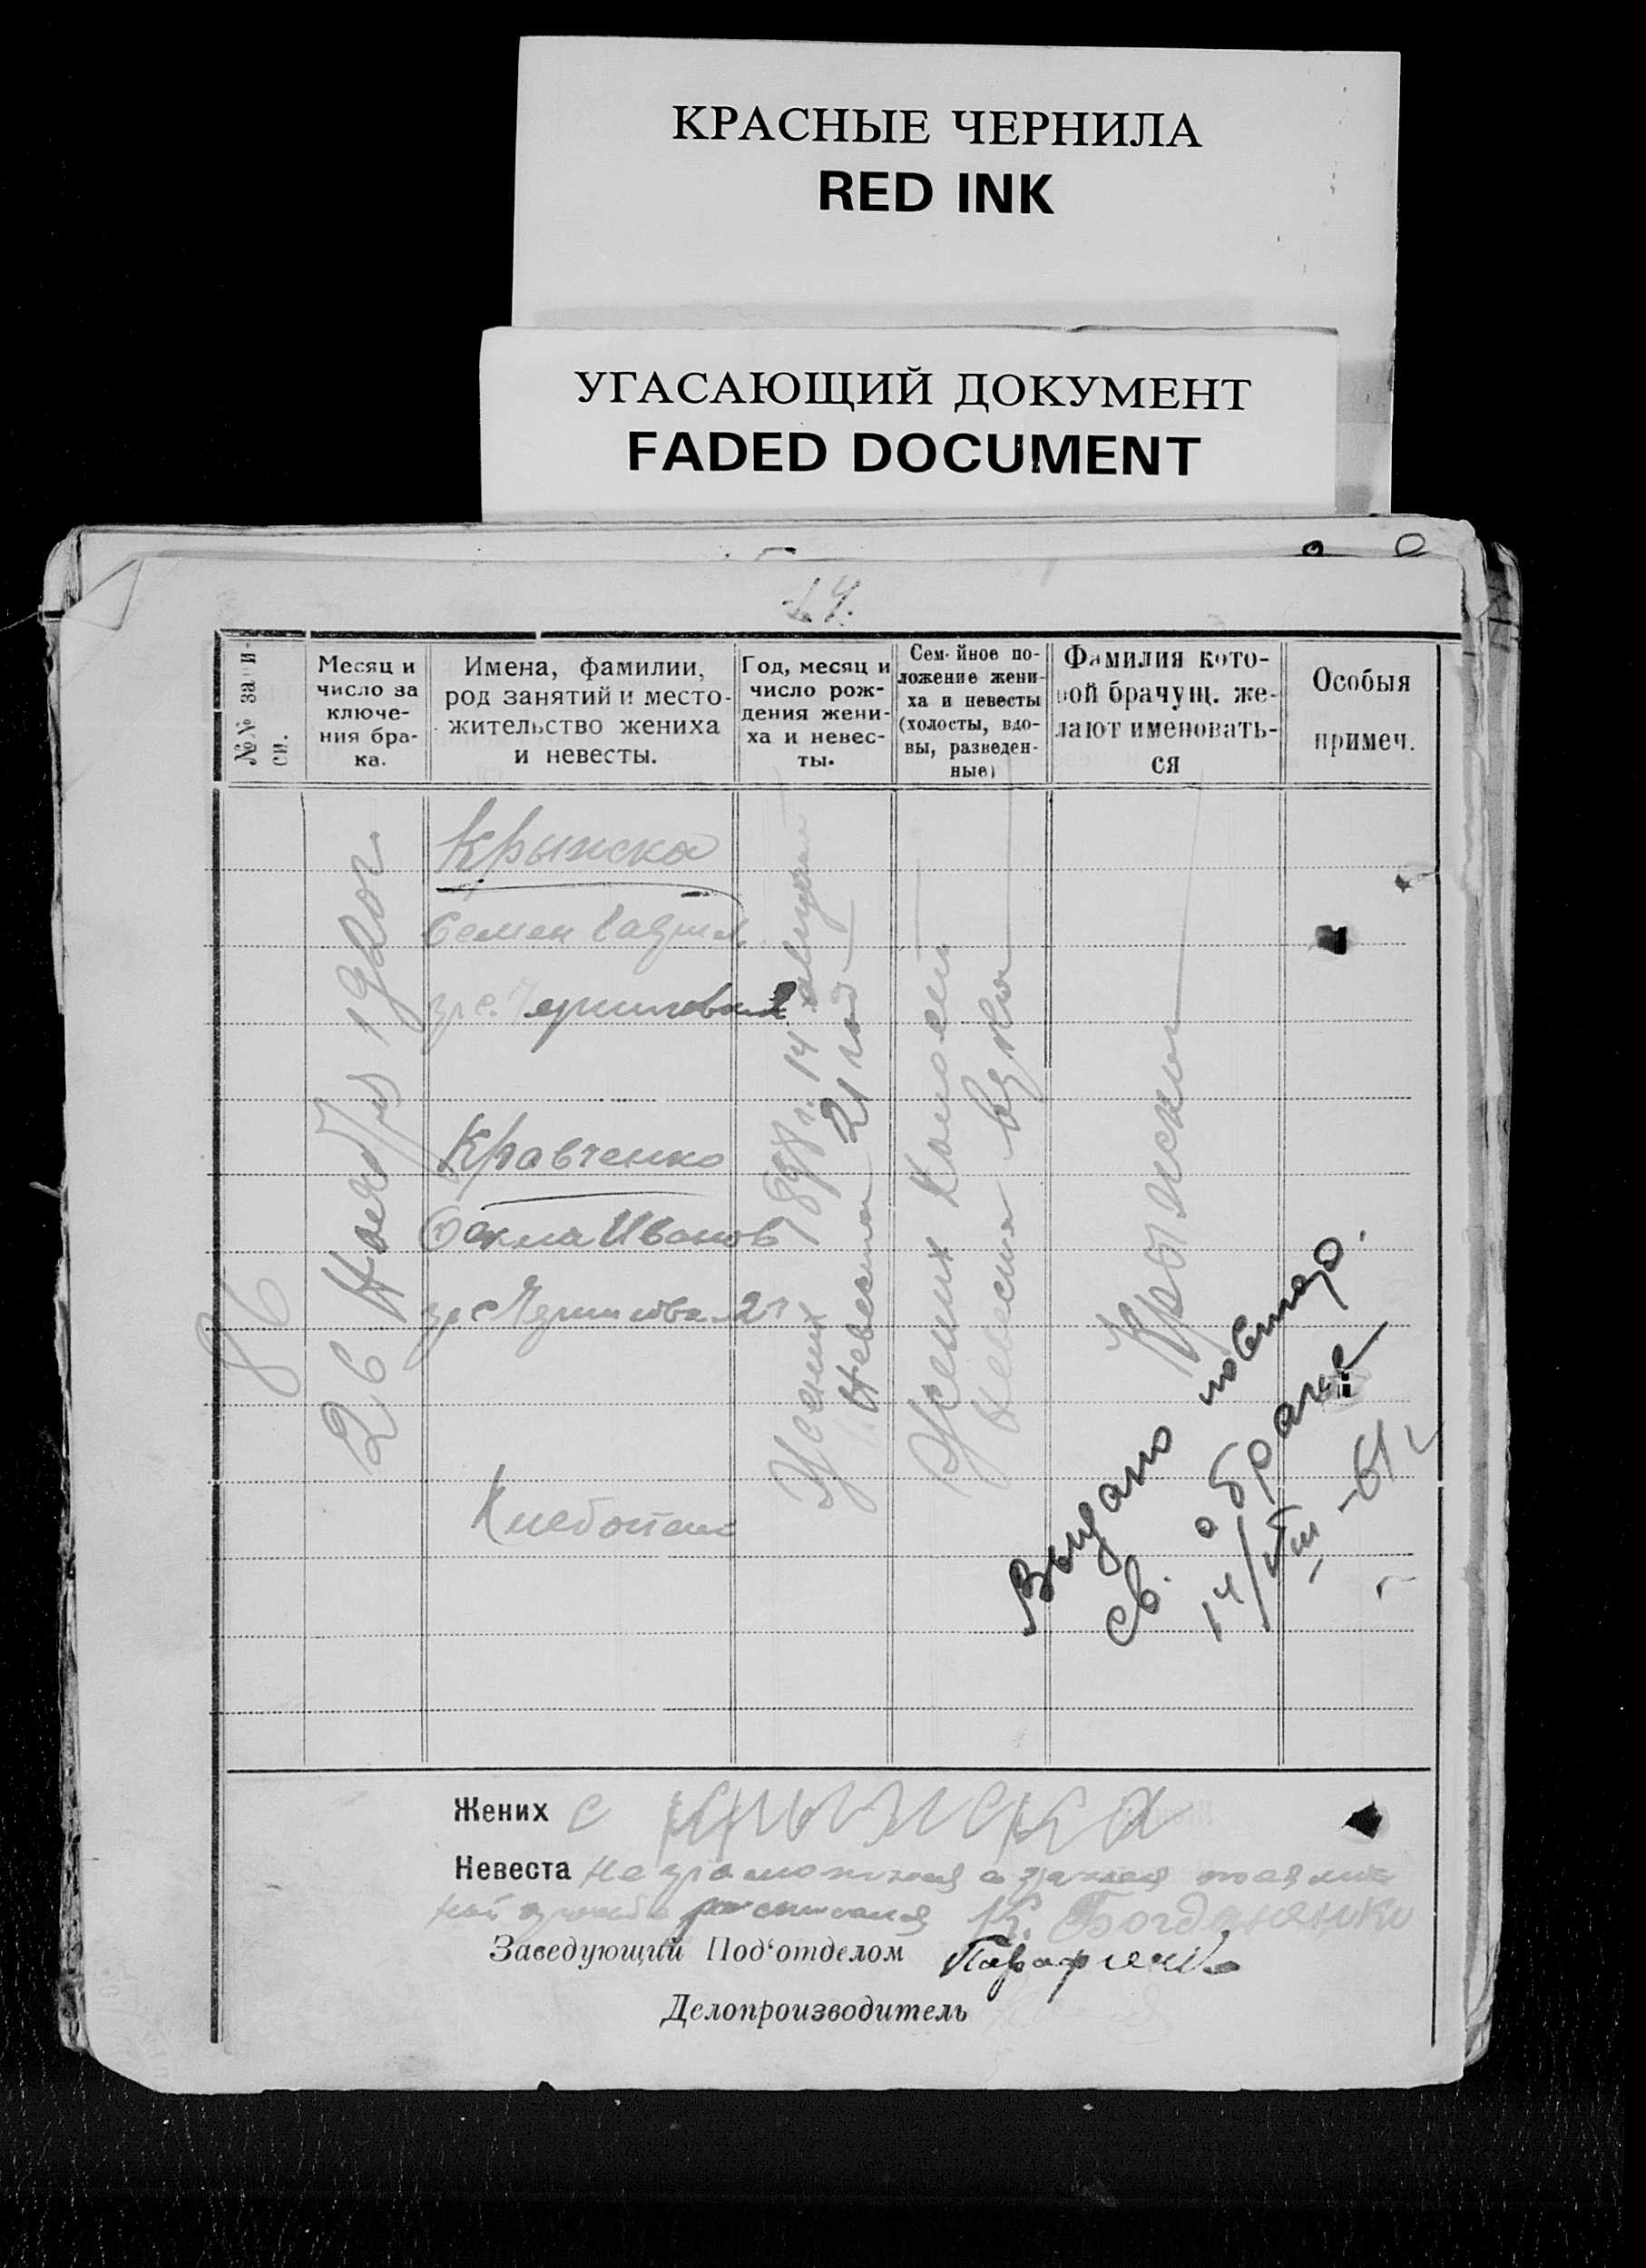 КРАСНЫЕ ЧЕРНИЛА
RED INK
УГАСАЮЩИЙ ДОКУМЕНТ
FADED DOCUMENT
№№ запи-
си.
Месяц и
число за
ключе-
ния бра-
ка.
Имена, фамилии,
род занятий и место-
жительство жениха
и невесты.
Год, месяц и
число рож-
дения жени-
ха и невес-
ты.
Семейное по-
ложение жени-
ха и невесты
(холосты, вдо-
вы, разведен-
ные)
Фамилия кото-
рой брачущ. же-
лают именовать-
ся
Особыя
примеч.
86
26 Ноября 1920 г.
Крыжска
Семен Гаврил.
гр с.
Кравченко
Фекла Иванов
гр с
Хлебопаш
Жених 1898 г. 14
Невеста 21 год
Жених Холост
Невеста вдова
Выдано повтор.
св. о браке
14/VIII-61 г
Жених С Крыжска
Невеста Неграмотная а за нея по ея лич
ной просьбе расписался К. Богданенко
Заведующий Под'отделом
Делопроизводитель